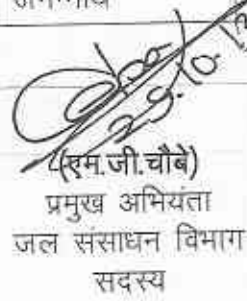 (एम.जी.चौबे)
प्रमुख अभियंता
जल संसाधन विभाग
सदस्य